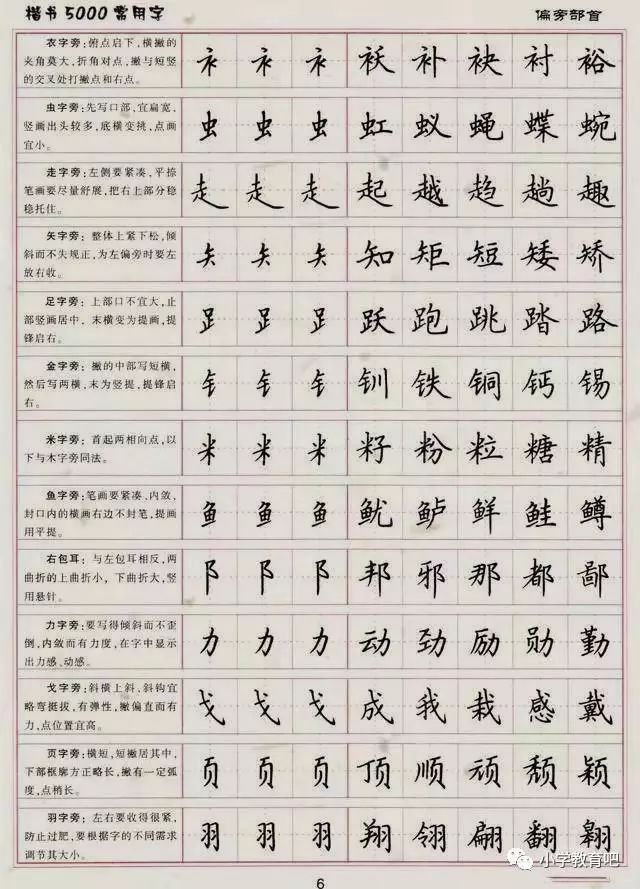 楷书5000常用字
偏旁部首
衣字旁：俯点启下，横撇的
夹角莫大，折角对点，撇与短竖
的交叉处打撇点和右点。
衤 衤 衤 袄 补 袂 衬 裕
虫字旁：先写口部，宜扁宽，
竖画出头较多，底横变挑，点画
宜小。
虫 虫 虫 虹 蚁 蝇 蝶 蜿
走字旁：左侧要紧凑，平捺
笔画要尽量舒展，把右上部分稳
稳托住。
走 走 走 起 越 趋 趟 趣
矢字旁：整体上紧下松，倾
斜而不失规正，为左偏旁时要左
放右收。
矢 矢 矢 知 矩 短 矮 矫
足字旁：上部口不宜大，止
部竖画居中，末横变为提画，提
锋启右。
𧾷 𧾷 𧾷 跃 跑 跳 踏 路
金字旁：撇的中部写短横，
然后写两横，末为竖提，提锋启
右。
钅 钅 钅 钏 铁 铜 钙 锡
米字旁：首起两相向点，以
下与木字旁同法。
米 米 米 籽 粉 粒 糖 精
鱼字旁：笔画要紧凑，内敛，
封口内的横画右边不封笔，提画
用平提。
鱼 鱼 鱼 鱿 鲈 鲜 鲑 鳟
右包耳：与左包耳相反，两
曲折的上曲折小，下曲折大，竖
用悬针。
阝 阝 阝 邦 邪 那 都 鄙
力字旁：要写得倾斜而不歪
倒，内敛而有力度，在字中显示
出力感、动感。
力 力 力 动 劲 励 勋 勤
戈字旁：斜横上斜，斜钩宜
略弯挺拔，有弹性，撇偏直而有
力，点位置宜高。
戈 戈 戈 成 我 栽 感 戴
页字旁：横短，短撇居其中，
下部框廓方正略长，撇有一定弧
度，点稍长。
页 页 页 顶 顺 顽 颓 颖
羽字旁：左右要收得很紧，
防止过肥，要根据字的不同需求
调节其大小。
羽 羽 羽 翔 翎 翩 翻 翱
小学教育吧
6